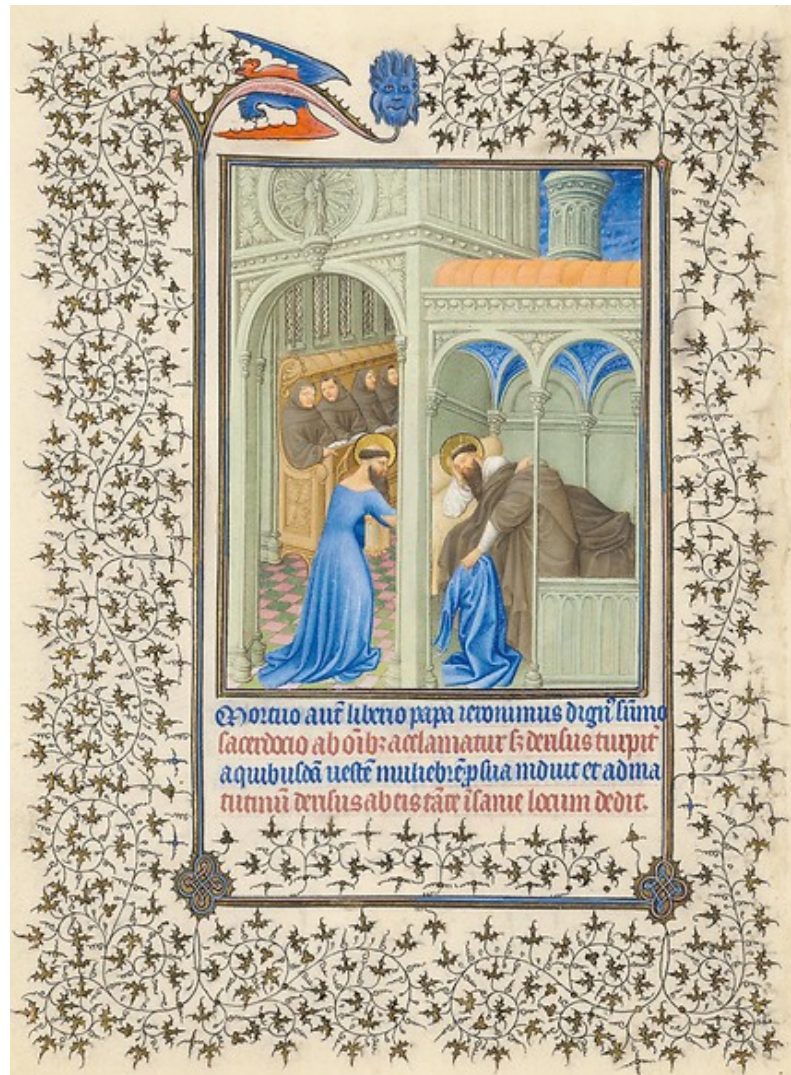 Mortuo aut̄ liberio papa ieronimus dignꝰ sūmo
sacerdocio ab oībꝫ acclamatur sꝫ derisus turpit̄
a quibusdā uestē muliebrē induit et ad ma
tutinū derisus ab eis tāte īsanie locum dedit.